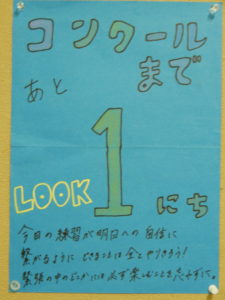 コンクール
まで
あと
LOOK 1 にち
今日の練習が明日への自信に
繋がるように できることは全てやりきろう!
緊張の中のどこかには必ず楽しむことを忘れずに。